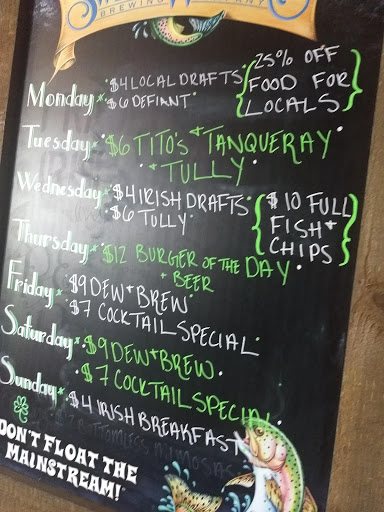 BREWING COMPANY
Monday $4 LOCAL DRAFTS
$6 DEFIANT
25% OFF
FOOD FOR
LOCALS
Tuesday $6 TITO'S + TANQUERAY
+ TULLY
Wednesday $4 IRISH DRAFTS
$6 TULLY
$10 FULL
FISH +
CHIPS
Thursday $12 BURGER OF THE DAY
+ BEER
Friday $9 DEW + BREW
$7 COCKTAIL SPECIAL
Saturday $9 DEW + BREW
$7 COCKTAIL SPECIAL
Sunday $4 IRISH BREAKFAST
BOTTOMLESS MIMOSAS
DON'T FLOAT THE
MAINSTREAM!